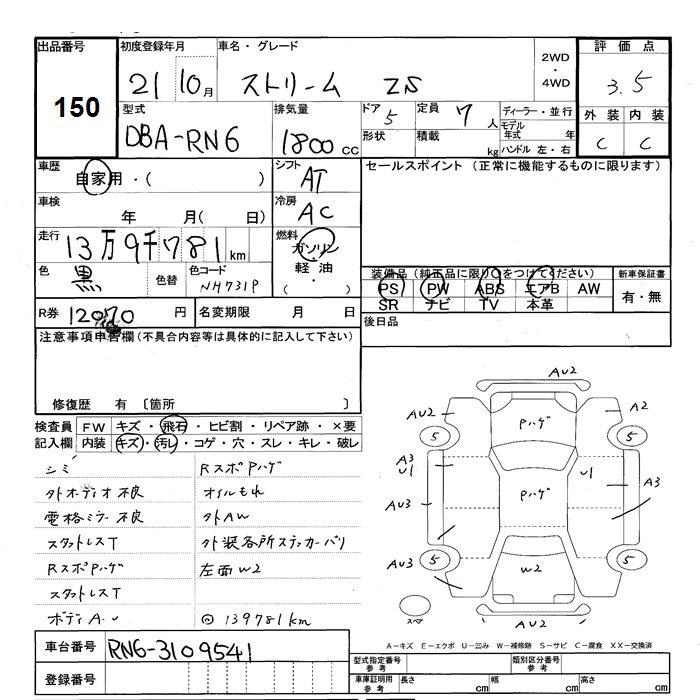 出品番号
150
初度登録年月
21 10月
車名・グレード
ストリーム ZS
2WD
・
4WD
評価点
3.5
型式
DBA-RN6
排気量
1800cc
ドア
5
形状
定員
7人
積載
kg
ディーラー・並行
モデル
年式 年
ハンドル 左・右
外装 内装
C C
車歴
自家用・( )
シフト
AT
セールスポイント(正常に機能するものに限ります)
車検
年 月( 日)
冷房
AC
走行
13万9千781km
燃料
ガソリン
・
軽油
・
( )
色
黒
色替
色コード
NH731P
装備品(純正品に限り○をつけてください)
新車保証書
PS PW ABS エアB AW
SR ナビ TV 本革
有・無
R券 12070円
名変期限 月 日
後日品
注意事項申告欄(不具合内容等は具体的に記入して下さい)
修復歴 有 〔箇所 〕
検査員 FW キズ・飛石・ヒビ割・リペア跡・×要
記入欄 内装 キズ・汚し・コゲ・穴・スレ・キレ・破レ
シミ RスポPハゲ
外オーディオ不良 オイルもれ
電格ミラー不良 外AW
スタットレスT 外装各所ステッカーバリ
RスポPハゲ 左面W2
スタットレスT
ボディA・U ◎139781km
AU2
AU2 Pハゲ A2
5 5
A3
U1 U1
A3
AU3 Pハゲ
AU3
5 W2 5
スペア
AU2
A-キズ E-エクボ U-凹み W-補修跡 S-サビ C-腐食 XX-交換済
車台番号 RN6-3109541
登録番号
型式指定番号
参考
類別区分番号
参考
車庫証明用
参考
長さ cm 幅 cm 高さ cm